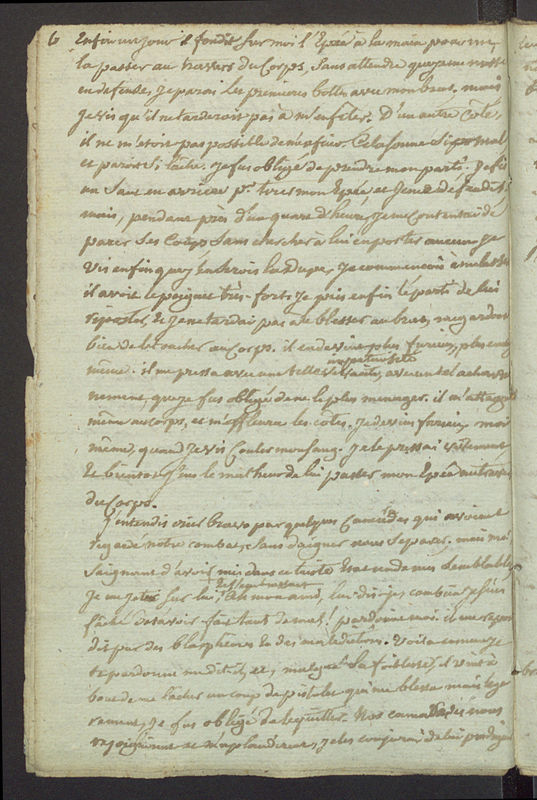 6 Enfin un jour il fondit sur moi l'Epée à la main pour me
la passer au travers du Corps, sans attendre que je me misse
en defense, Je parai les premieres bottes avec mon bras. mais
Je vis qu'il ne tarderoit pas à m'enfiler. D'un autre côté,
il ne m'etoit pas possible de m'enfuir. Cela sonne si mal
et paroit si lâche. Je fus obligé de prendre mon parti. Je fis
un Saut en arriere pr. tirer mon Epée et Je me defendis
mais, pendant près d'un quart d'heure, Je me contentai de
parer ses Coups sans chercher à lui en porter aucun. Je
vis enfin que j'en serois la Dupe, Je commençois à me lasser
il avoit le poignet très-fort. Je pris enfin le parti de lui
riposter, Et Je ne tardai pas à le blesser au bras, me gardant
bien de le toucher au Corps. il en devint plus furieux, plus
même. il me pressa avec une telle impetuosité, avec un tel acharne
nement, que je fus obligé de ne le plus menager. il m'attaqua
même au corps, et m'effleura les côtes. Je devins furieux, moi
même, quand Je vis Couler mon sang. Je le pressai vivement
Et bientot J'eus le malheur de lui passer mon Epée au travers
du Corps.
J'entendis crier bravo par quelques Camarades qui avoient
regardé notre combat, sans daigner nous separer. mais moi
Saignant d'avoir mis dans ce triste Etat un de mes semblables,
Je me jettai sur lui, et l'embrassant Ah mon ami, lui dis-je, combien je suis
fâché de t'avoir fait tant de mal! pardonne moi. il me repon
dit par des blasphemes et des maledictions. Voila comme je
te pardonne me dit il, et, malgré sa foiblesse, il vint à
bout de me lâcher un coup de pistolet qui me blessa mais lege
rement, Je fus obligé de le quitter. Nos camarades nous
rejoignirent et m'applaudirent, Je les conjurai de lui prodiguer